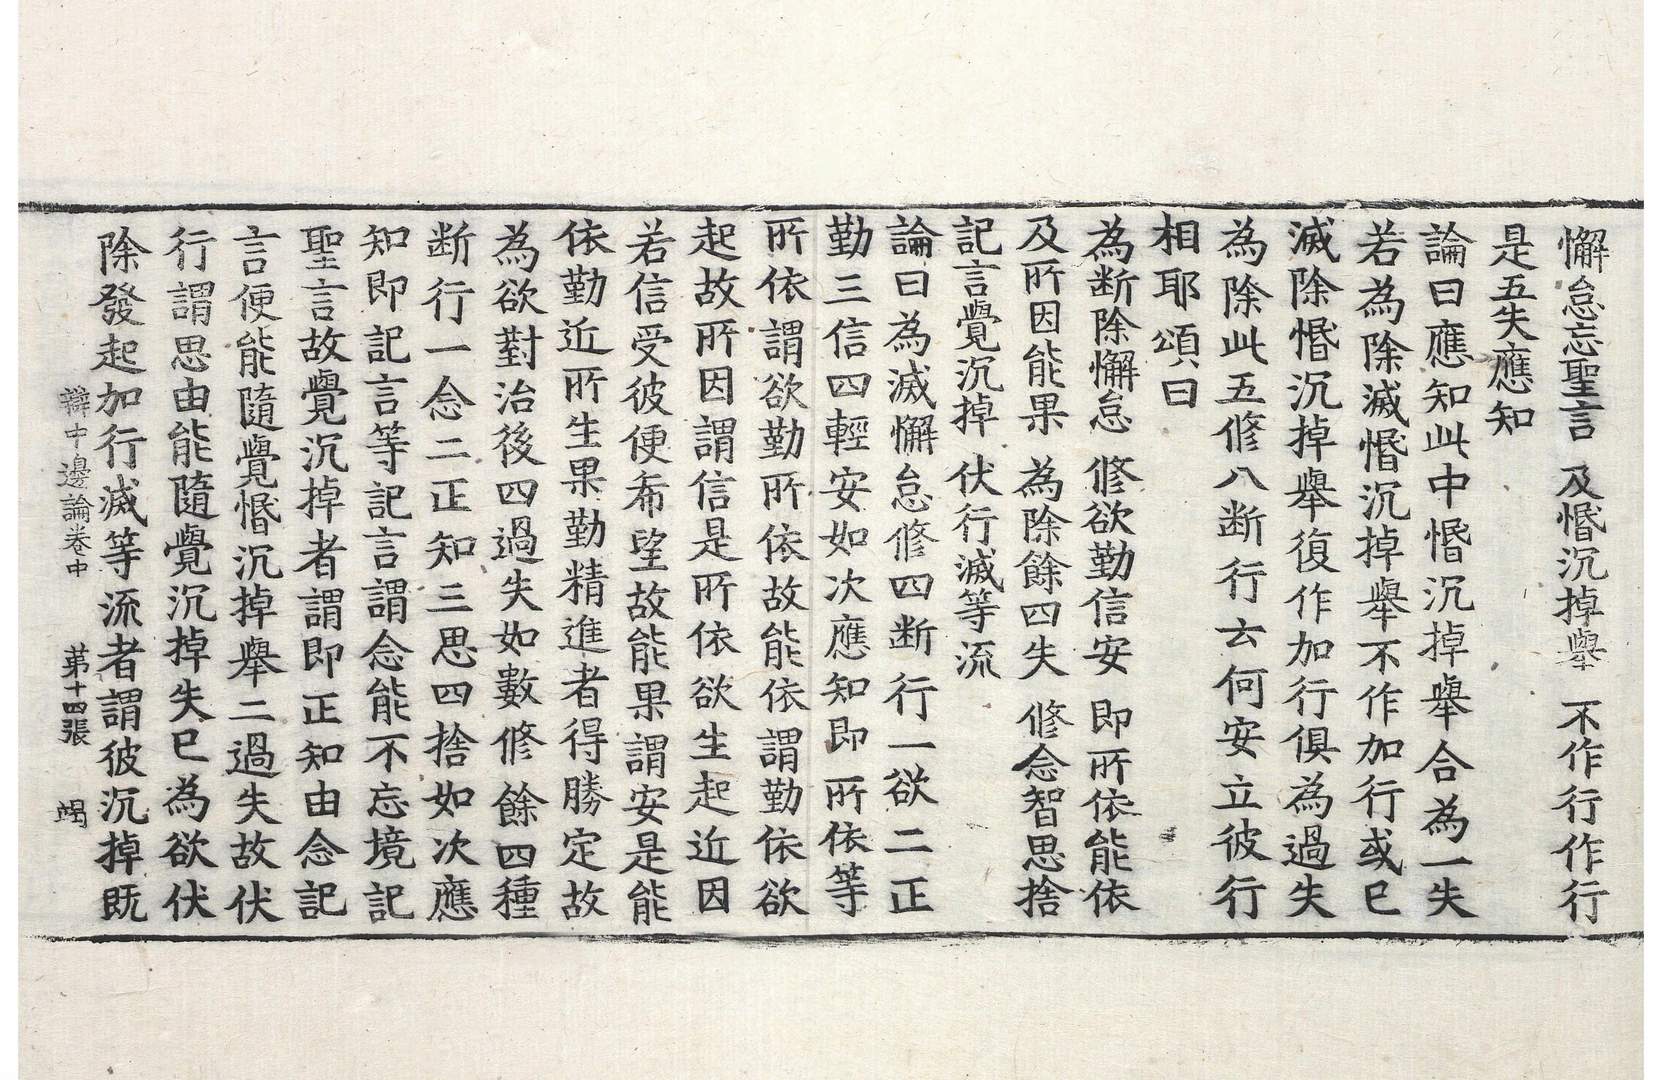 懈怠忘聖言 及惛沉掉舉 不作行作行
是五失應知
論曰應知此中惛沉掉舉合為一失
若為除滅惛沉掉舉不作加行或已
滅除惛沉掉舉復作加行俱為過失
為除此五修八断行云何安立彼行
相耶頌曰
為断除懈怠 修欲勤信安 即所依能依
及所因能果 為除餘四失 修念智思捨
記言覺沉掉 伏行滅等流
論曰為滅懈怠修四断行一欲二正
勤三信四輕安如次應知即所依等
所依謂欲勤所依故能依謂勤依欲
起故所因謂信是所依欲生起近因
若信受彼便希望故能果謂安是能
依勤近所生果勤精進者得勝定故
為欲對治後四過失如數修餘四種
断行一念二正知三思四捨如次應
知即記言等記言謂念能不忘境記
聖言故覺沉掉者謂即正知由念記
言便能隨覺惛沉掉舉二過失故伏
行謂思由能隨覺沉掉失已為欲伏
除發起加行滅等流者謂彼沉掉既
辯中邊論卷中 第十四張 竭